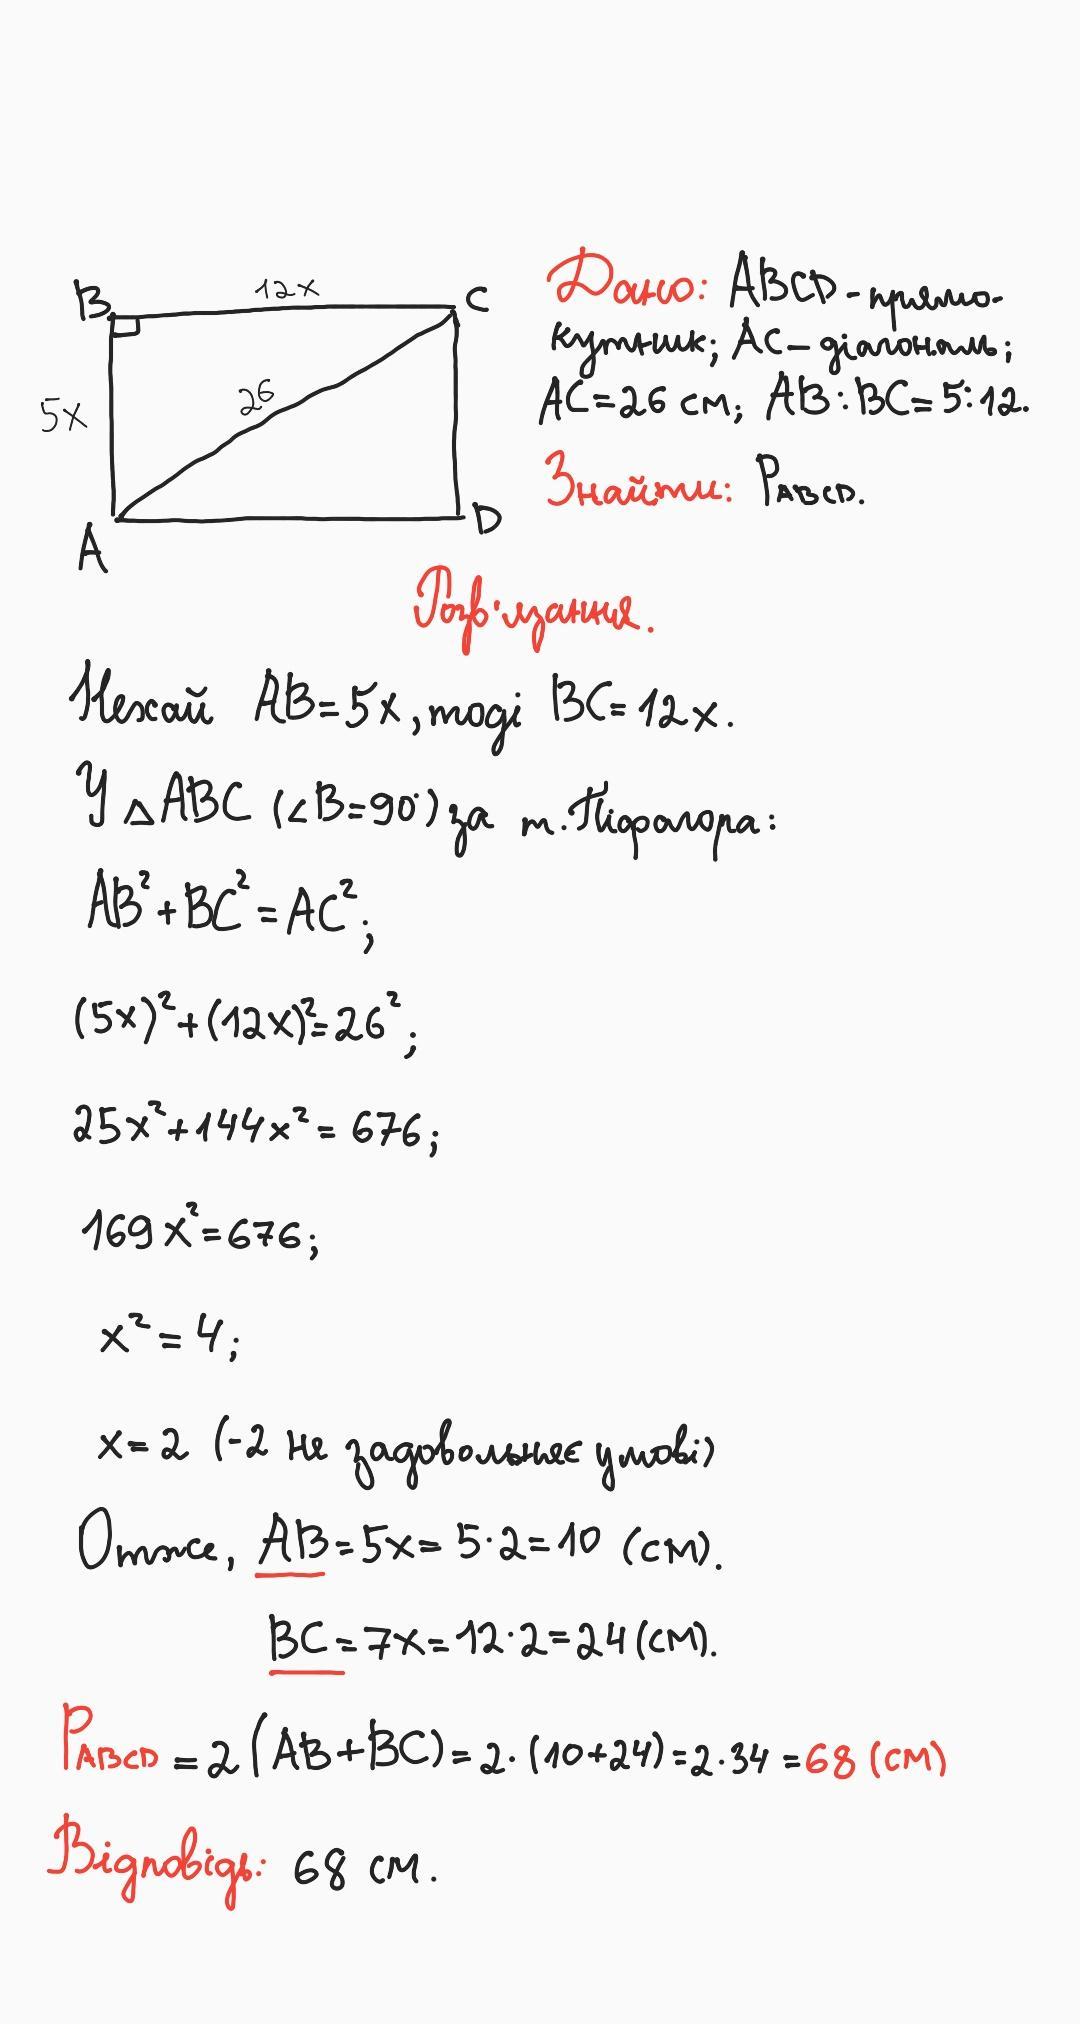 B
12x
C
5x
26
A
D
Дано: ABCD - прямо-
кутник; AC – діагональ;
AC = 26 см; AB : BC = 5 : 12.
Знайти: P_ABCD.
Розв'язання.
Нехай AB = 5x, тоді BC = 12x.
У △ABC (∠B = 90°) за т. Піфагора:
AB² + BC² = AC²;
(5x)² + (12x)² = 26²;
25x² + 144x² = 676;
169x² = 676;
x² = 4;
x = 2 (-2 не задовольняє умові)
Отже, AB = 5x = 5·2 = 10 (см).
BC = 7x = 12·2 = 24 (см).
P_ABCD = 2 (AB + BC) = 2·(10+24) = 2·34 = 68 (см)
Відповідь: 68 см.